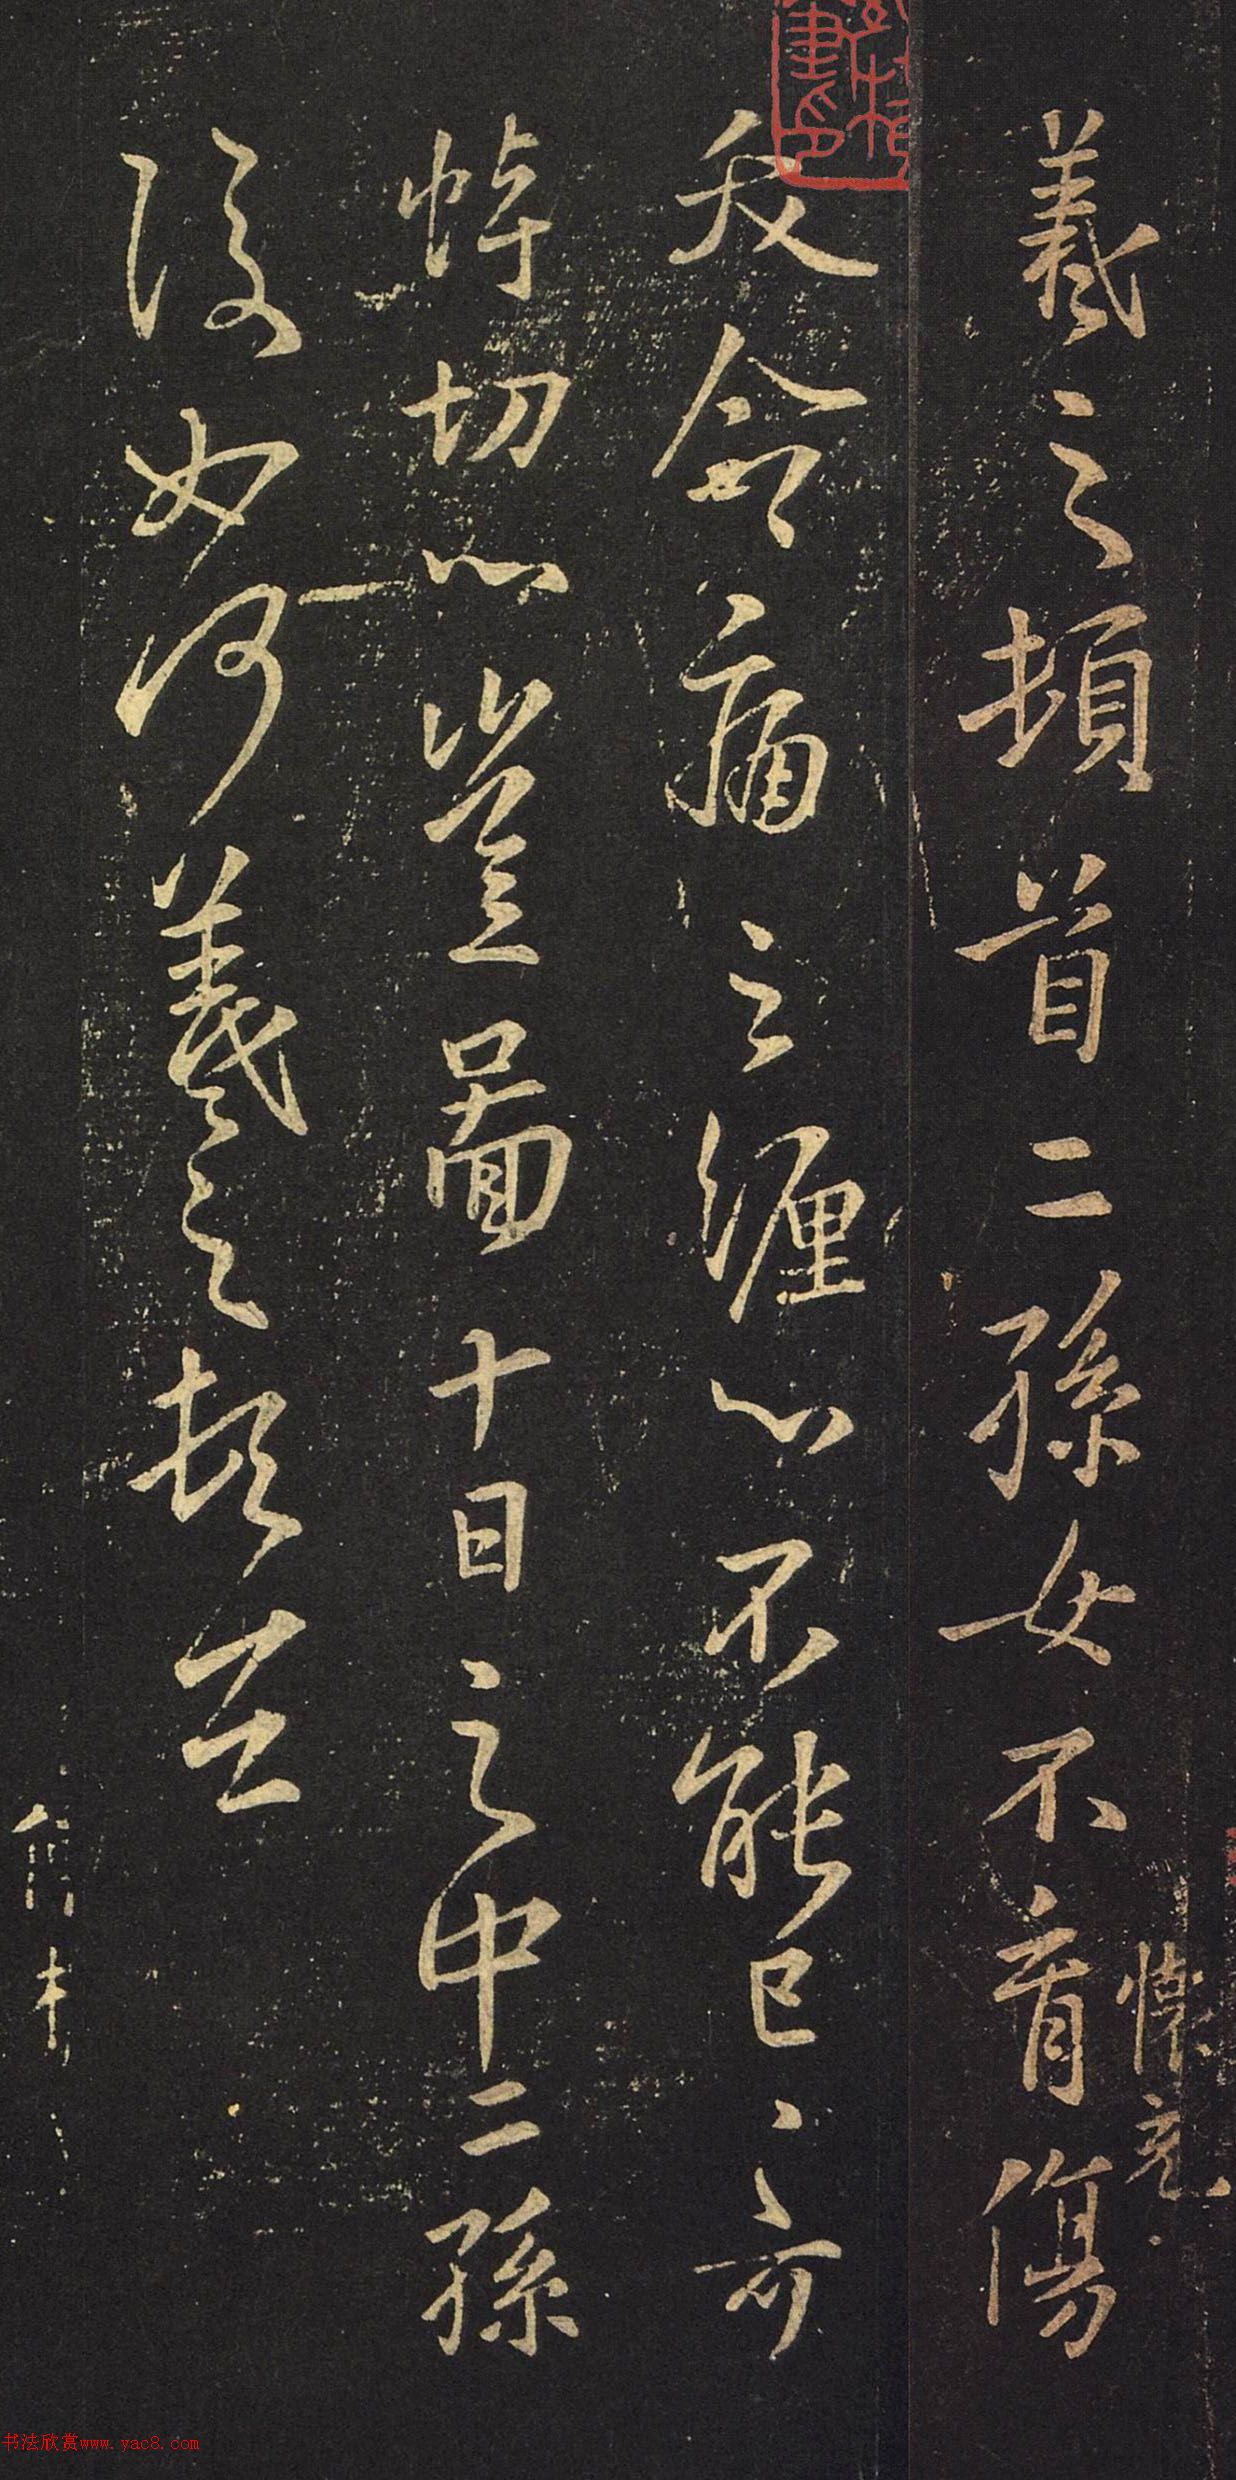 羲之頓首二孫女不育傷
懷充
反㑹痛之纏心不能已已可
悼切心豈圖十日之中二孫
復如何羲之頓首
书法欣赏www.yac8.com